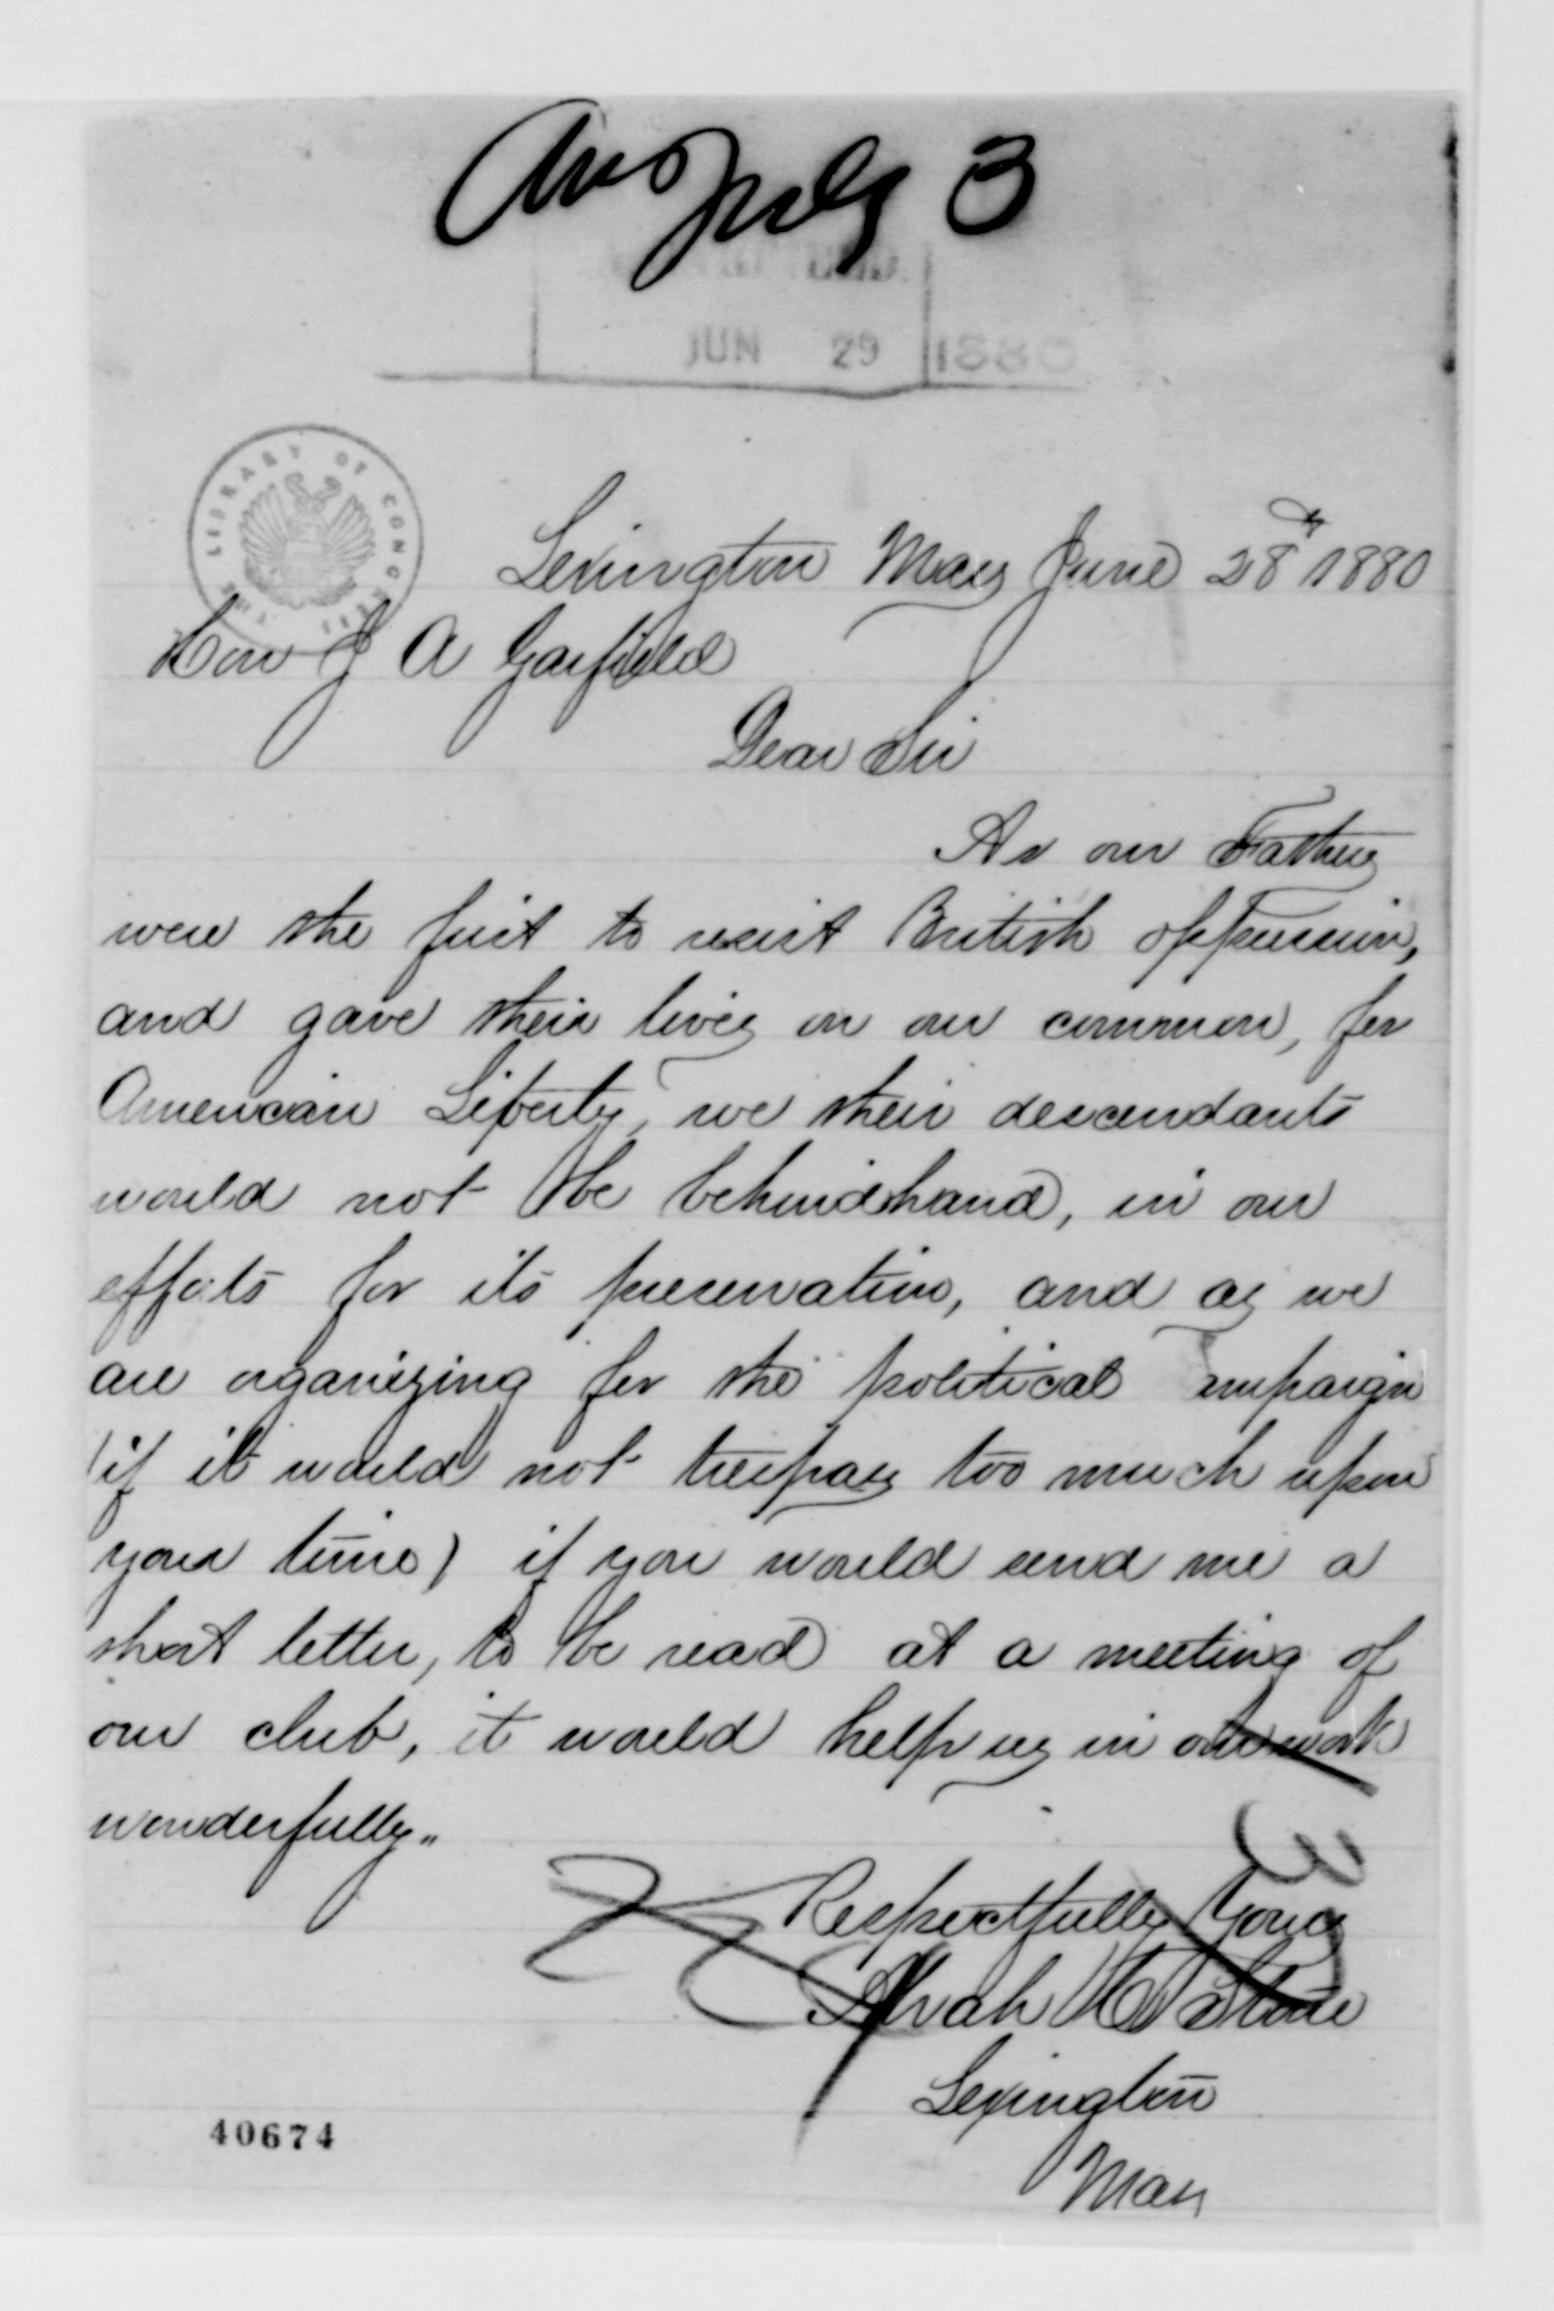 Ans July 3
JUN 29 1880
THE LIBRARY OF CONGRESS
Lexington Mass June 28th 1880
Hon J A Garfield
Dear Sir
As our Fathers
were the first to resist British oppression,
and gave their lives on our common, for
American Liberty, we their descendants
would not be behindhand, in our
efforts for its preservation, and as we
are organizing for the political ampaign
(if it would not trespass too much upon
your time) if you would send me a
short letter, to be read at a meeting of
our club, it would help us in our work
wonderfully"
Respectfully Yours
Alvah Stone
Lexington
Mass
40674